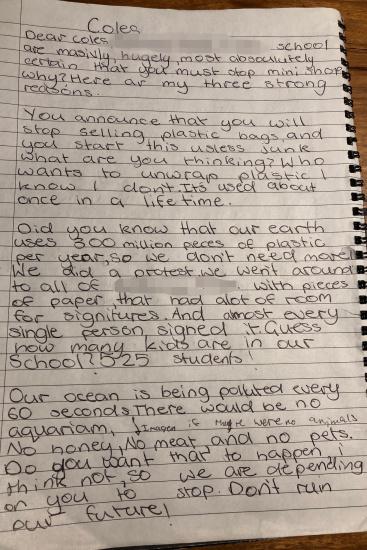 Coles
Dear coles school
are masivly, hugely, most absoulutely
certain that you must stop mini shop
why? Here ar my three strong
reasons.
You announce that you will
stop selling plastic bags, and
you start this usless junk
what are you thinking? Who
wants to unwrap plastic I
know I don't. Its used about
once in a life time.
Did you know that our earth
uses 300 million peces of plastic
per year, so we don't need more!
We did a protest, we went around
to all of with pieces
of paper that had alot of room
for signitures. And amost every
single person signed it. Guess
how many kids are in our
School? 525 students!
Our ocean is being polluted every
60 seconds. There would be no
aquariam, Imagen if there were no animals
No honey, No meat, and no pets.
Do you want that to happen i
think not, so we are depending
on you to stop. Don't ruin
our future!